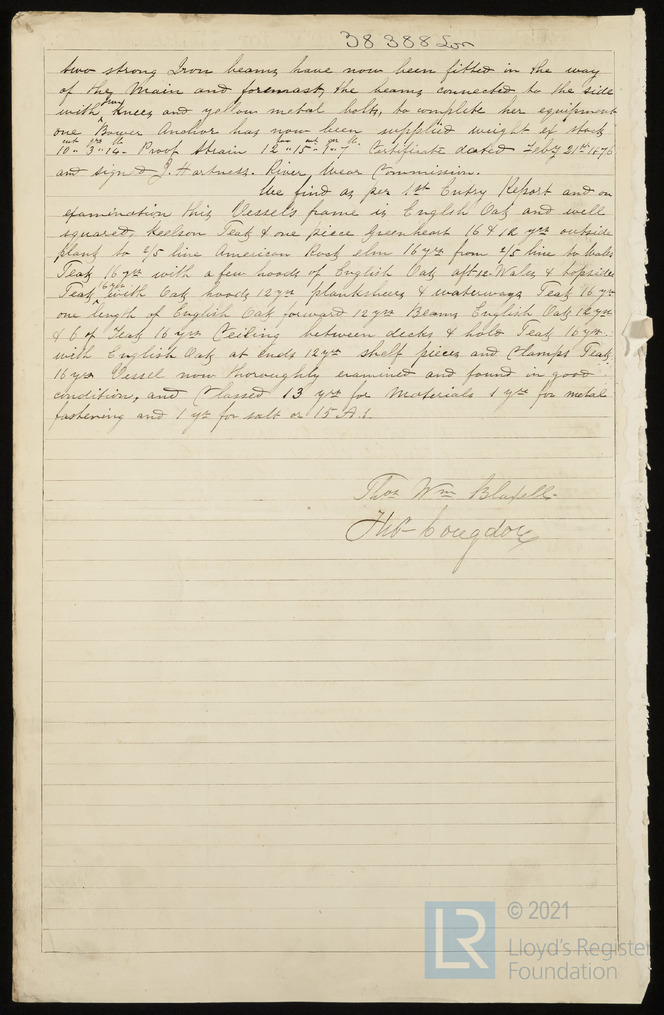 38388 Lon
two strong Iron beams have now been fitted in the way
of the Main and foremast, the beams connected to the side
with Iron Knees and yellow metal bolts, to complete her equipment
one Bower Anchor has now been supplied weight ex stock
cwt qrs lb ton cwt qrs lb
10 " 3 " 14 - Proof Strain 12 " 15 " 1 " 7 Certificate dated Feby 21st 1876
and signed J. Hartness. River Wear Commission.
We find as per 1st Entry Report and on
examination this Vessels frame is English Oak and well
squared, Keelson Teak & one piece Greenheart 16 & 12 yrs outside
plank to 2/5 line American Rock elm 16 yrs from 2/5 line to Wales
Teak 16 yrs with a few hoods of English Oak aft 12 Wales & topsides
Teak 16 yrs with Oak hoods 12 yrs planksheers & waterways Teak 16 yrs
one length of English Oak forward 12 yrs Beams English Oak 12 yrs
& 6 of Teak 16 yrs Ceiling between decks & hold Teak 16 yrs
with English Oak at ends 12 yrs shelf pieces and Clamps Teak
16 yrs Vessel now thoroughly examined and found in good
condition, and Classed 13 yrs for Materials 1 yr for metal
fastening and 1 yr for salt or 15 A.1.
Thos Wm Blaxell
Thos Congdon
LR
© 2021
Lloyd's Register
Foundation